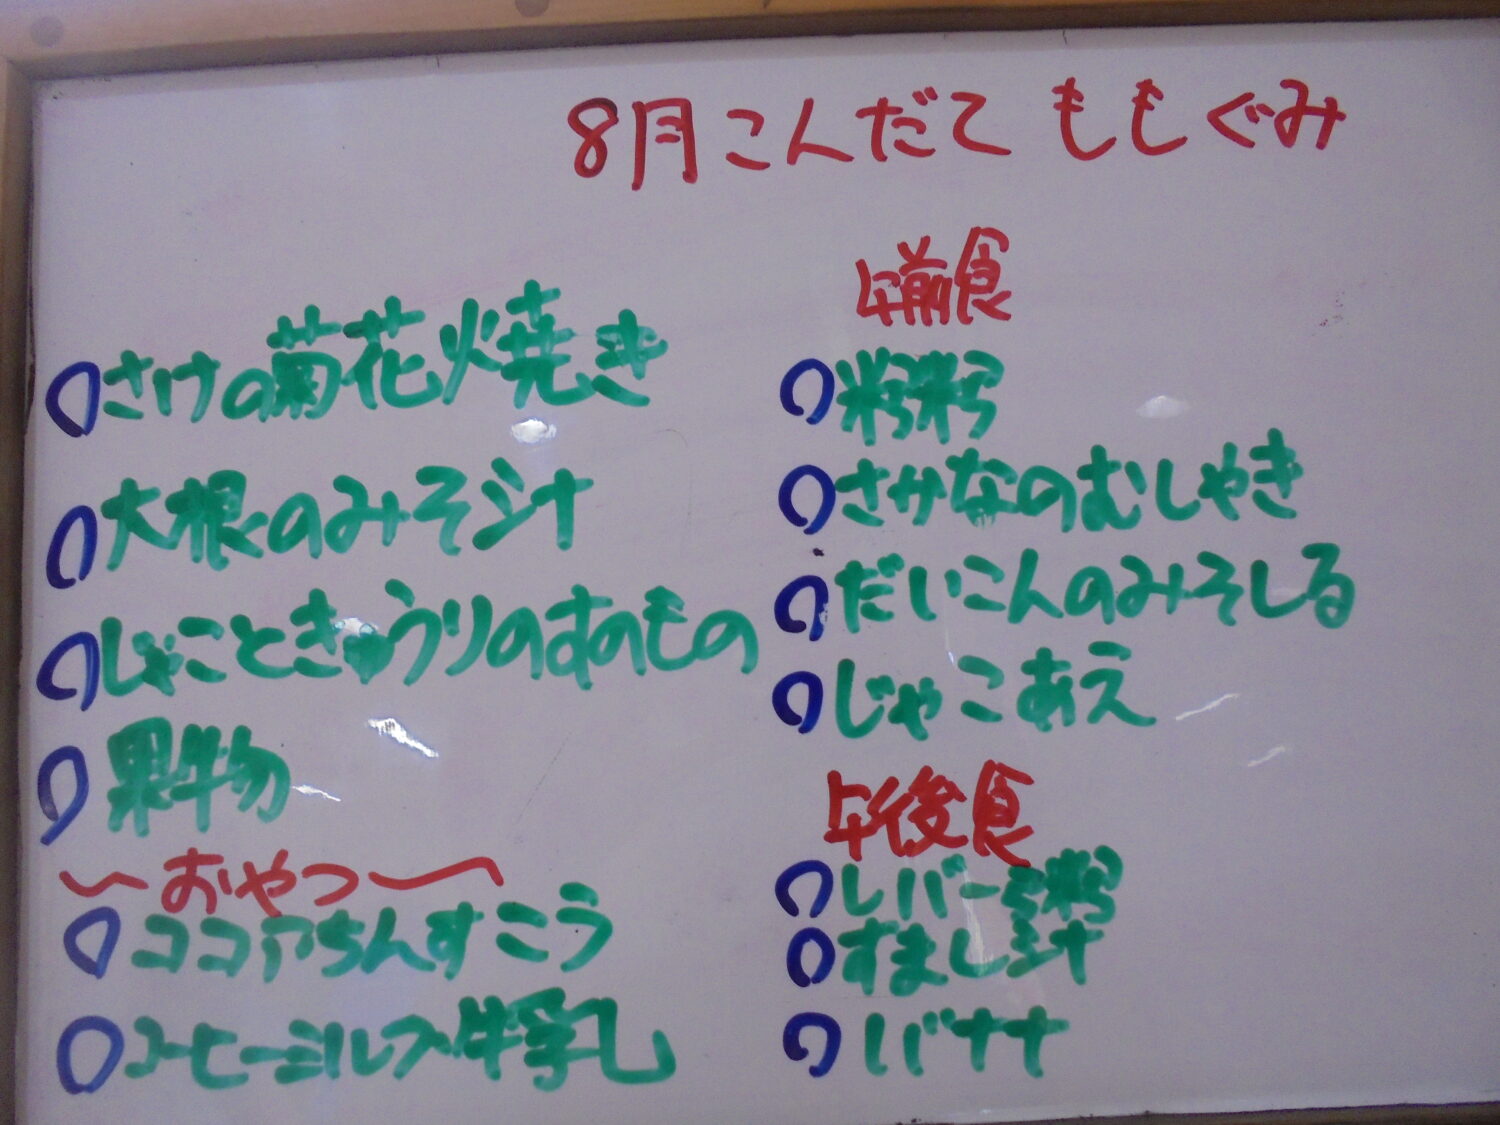 8月こんだて ももぐみ
さけの菊花焼き
大根のみそ汁
じゃこときゅうりのすのもの
果物
〜おやつ〜
ココアちんすこう
コーヒーミルク牛乳
午前食
粥
さかなのむしやき
だいこんのみそしる
じゃこあえ
午後食
レバー粥
すまし汁
バナナ